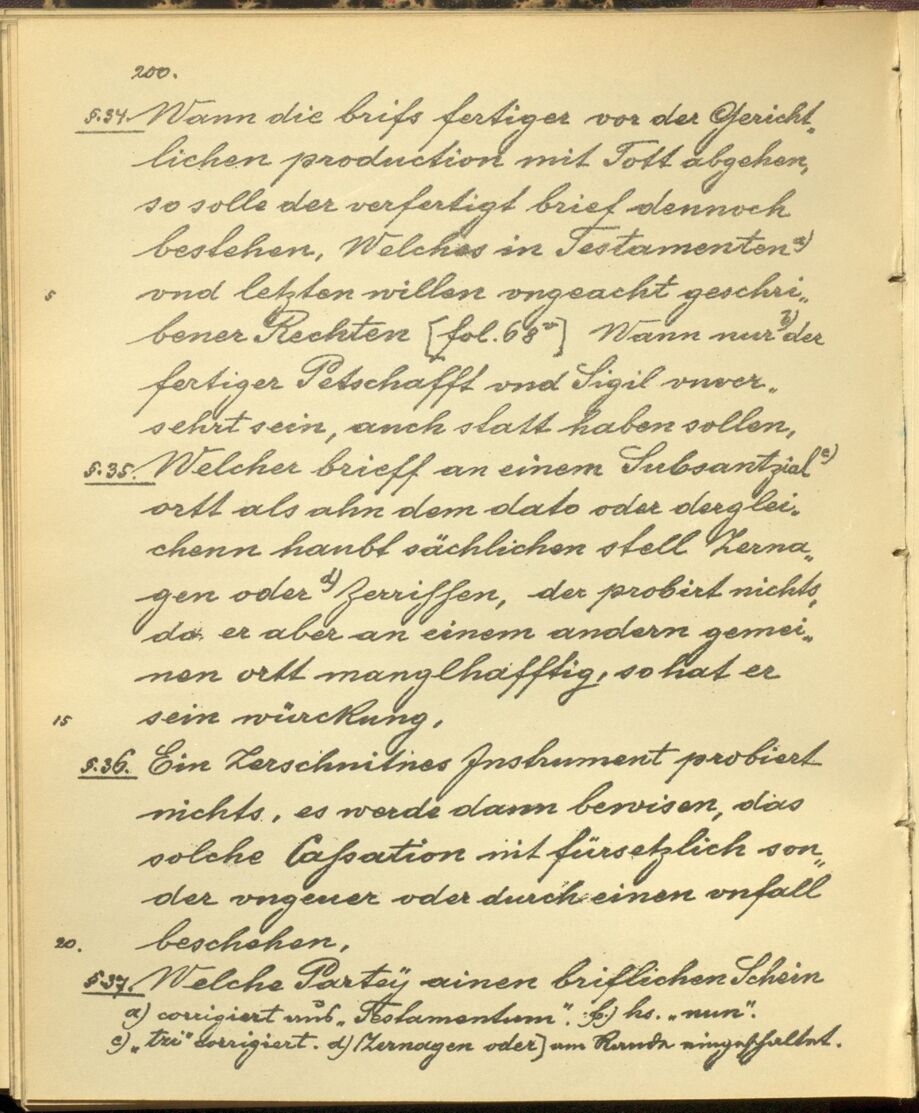 200.
§.34. Wann die brifs fertiger vor der Gericht„
lichen production mit Tott abgehen,
so solle der verfertigt brief dennoch
bestehen, Welches in Testamenten a)
5 vnd letzten willen vngeacht geschri„
bener Rechten [fol. 68v] Wann nur b) der
fertiger Petschafft vnd Sigil vnver„
sehrt sein, auch statt haben sollen,
§.35. Welcher brieff an einem Subsantzial c)
ortt als ahn dem dato oder derglei„
chenn haubt sächlichen stell Zerna„
gen oder d) Zerrissen, der probirt nichts,
da er aber an einem andern gemei„
nen ortt manglhafftig, so hat er
15 sein würckung,
§.36. Ein Zerschnitnes Jnstrument probiert
nichts, es werde dann bewisen, das
solche Cassation nit fürsetzlich son„
der vngeuer oder durch einen vnfall
20. beschehen,
§.37. Welche Parteÿ ainen briflichen Schein
a) corrigiert aus „Testamentum“. b) hs. „nun“.
c) „tzi“ corrigiert. d) [Zernagen oder] am Rande eingeschaltet.